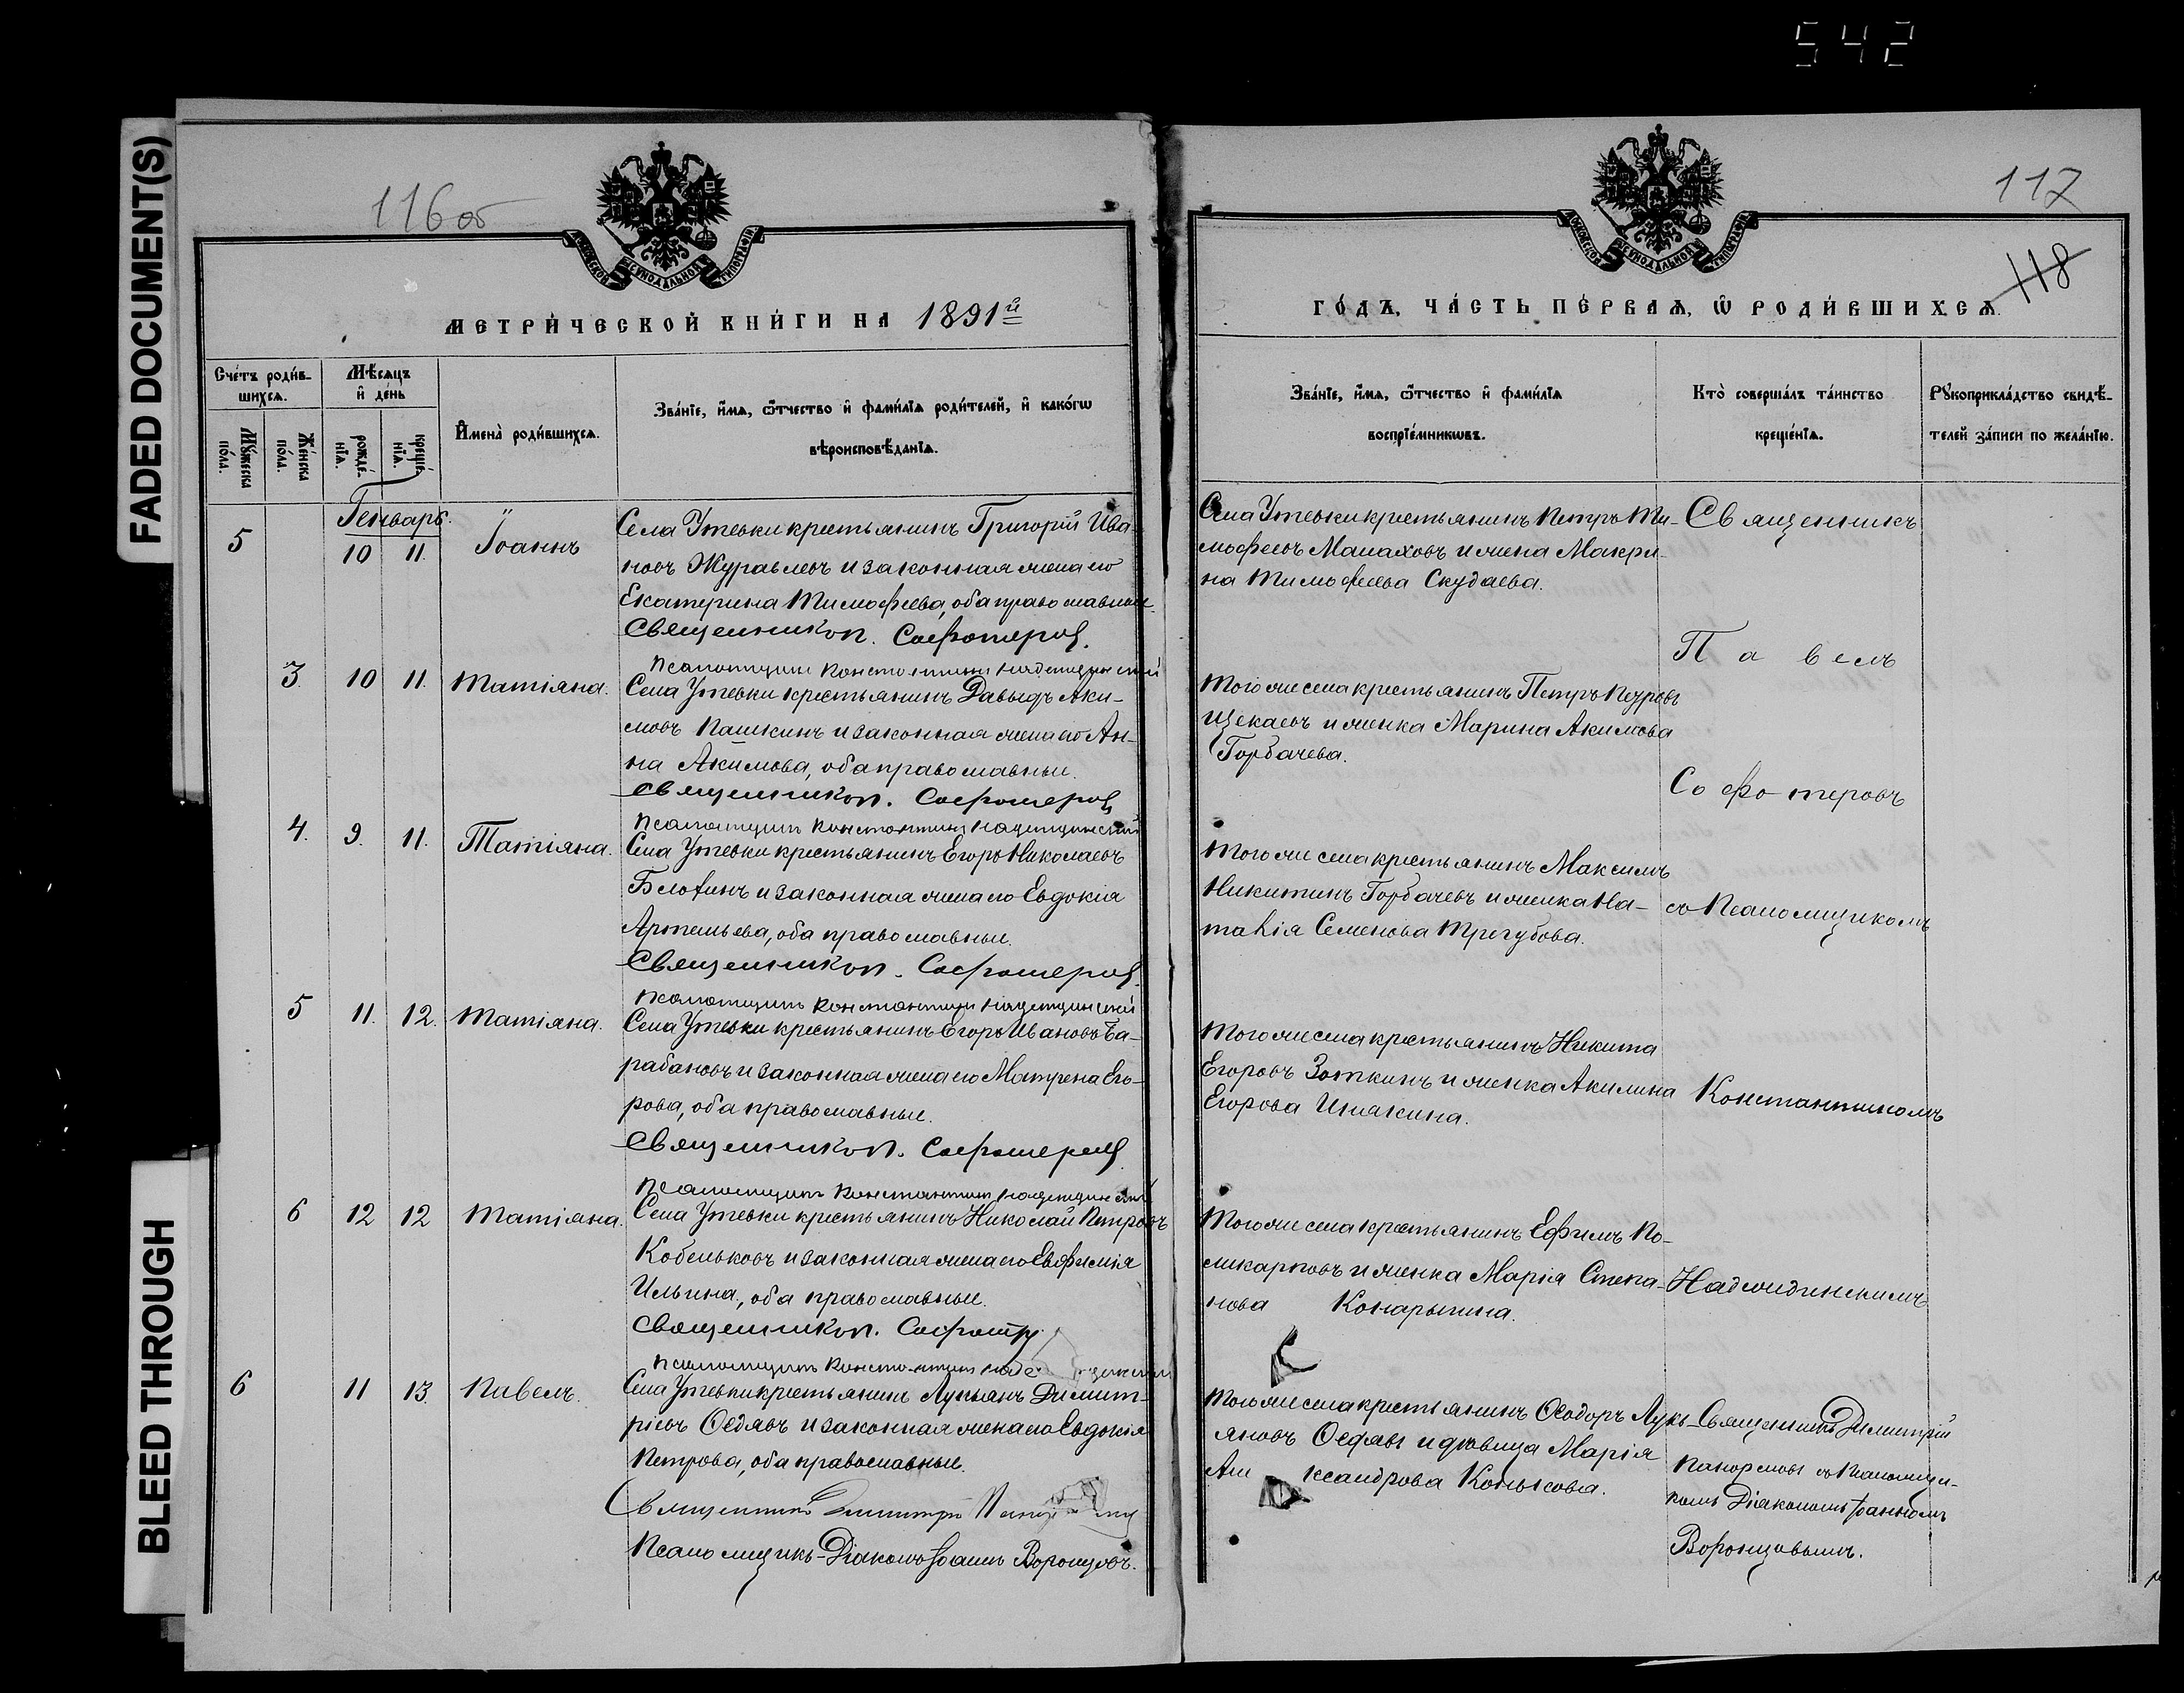 542
FADED DOCUMENT(S)
BLEED THROUGH
116 об
МОСКОВСКОЙ СѴНОДАЛЬНОЙ ТИПОГРАФІИ
МЕТРИ́ЧЕСКОЙ КНИ́ГИ НА 1891й
Сче́тъ роди́в-
шихсѧ.
Мꙋ́жеска по́ла.
Же́нска по́ла.
Мѣ́сяцъ
и҆ де́нь
рожде́-
нїѧ.
креще́-
нїѧ.
И҆мена̀ роди́вшихсѧ.
Зва́нїе, и҆́мѧ, ѻ҆́тчество и҆ фами́лїѧ роди́телей, и҆ како́гѡ
вѣроисповѣ́данїѧ.
Генварь.
5
10 11.
Іоаннъ
Села Утевки крестьянинъ Григорій Ива-
новъ Журавлевъ и законная жена его
Екатерина Тимофеева, оба православные.
Священникъ П. Софотеровъ
Псаломщикъ Константинъ Надеждинскій
3. 10 11. Татіана.
Села Утевки крестьянинъ Давыдъ Аки-
мовъ Пашкинъ и законная жена его Ан-
на Акимова, оба православные.
Священникъ П. Софотеровъ
Псаломщикъ Константинъ Надеждинскій
4. 9. 11. Татіана.
Села Утевки крестьянинъ Егоръ Николаевъ
Бловинъ и законная жена его Евдокія
Артемьева, оба православные.
Священникъ П. Софотеровъ
Псаломщикъ Константинъ Надеждинскій
5 11. 12. Татіана.
Села Утевки крестьянинъ Егоръ Ивановъ Ба-
рабановъ и законная жена его Матрена Его-
рова, оба православные.
Священникъ П. Софотеровъ
Псаломщикъ Константинъ Надеждинскій
6 12 12 Татіана.
Села Утевки крестьянинъ Николай Петровъ
Кобельковъ и законная жена его Евфимія
Ильина, оба православные.
Священникъ П. Софотеровъ
Псаломщикъ Константинъ Надеждинскій
6 11 13. Павелъ.
Села Утевки крестьянинъ Лукьянъ Димит-
ріевъ Ѳедяевъ и законная жена его Евдокія
Петрова, оба православные.
Священникъ Димитрій
Псаломщикъ-Діаконъ Іоаннъ Воронцовъ.
117
118
МОСКОВСКОЙ СѴНОДАЛЬНОЙ ТИПОГРАФІИ
ГО́ДЪ, ЧА́СТЬ ПЕ́РВАѦ, Ѡ҆ РОДИ́ВШИХСѦ.
Зва́нїе, и҆́мѧ, ѻ҆́тчество и҆ фами́лїѧ
воспрїе́мникѡвъ.
Кто̀ соверша́лъ та́инство
креще́нїѧ.
Рꙋкоприкла́дство свидѣ́-
телей за́писи по жела́нїю.
Села Утевки крестьянинъ Петръ Ти-
мофеевъ Малаховъ и жена Макри-
на Тимофеева Скудаева.
Священникъ
Павелъ
Того же села крестьянинъ Петръ Петровъ
Щекаевъ и женка Марина Акимова
Горбачева.
Софотеровъ
Того же села крестьянинъ Максимъ
Никитинъ Горбачевъ и женка На-
талія Семенова Трегубова.
съ Псаломщикомъ
Того же села крестьянинъ Никита
Егоровъ Зоткинъ и женка Акилина
Егорова Инякина.
Константиномъ
Того же села крестьянинъ Ефимъ По-
ликарповъ и женка Марія Степа-
нова Конарыгина.
Надеждинскимъ
Того же села крестьянинъ Ѳеодоръ Лукь-
яновъ Ѳедяевъ и девица Марія
Александрова Копысова.
Священникъ Димитрій
Панормовъ съ Псаломщи-
комъ Діакономъ Іоанномъ
Воронцовымъ.